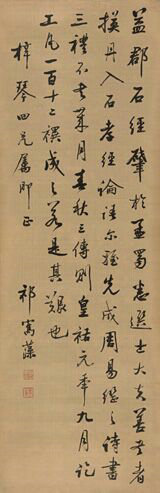 益郡石經肇於孟蜀悉選士大夫善書者
模丹入石孝經論語爾雅先成周易繼之詩書
三禮不書歲月春秋三傳則皇祐元年九月訖
工凡一百十二禩成之若是其艱也
梓琴四兄屬即正
祁寯藻